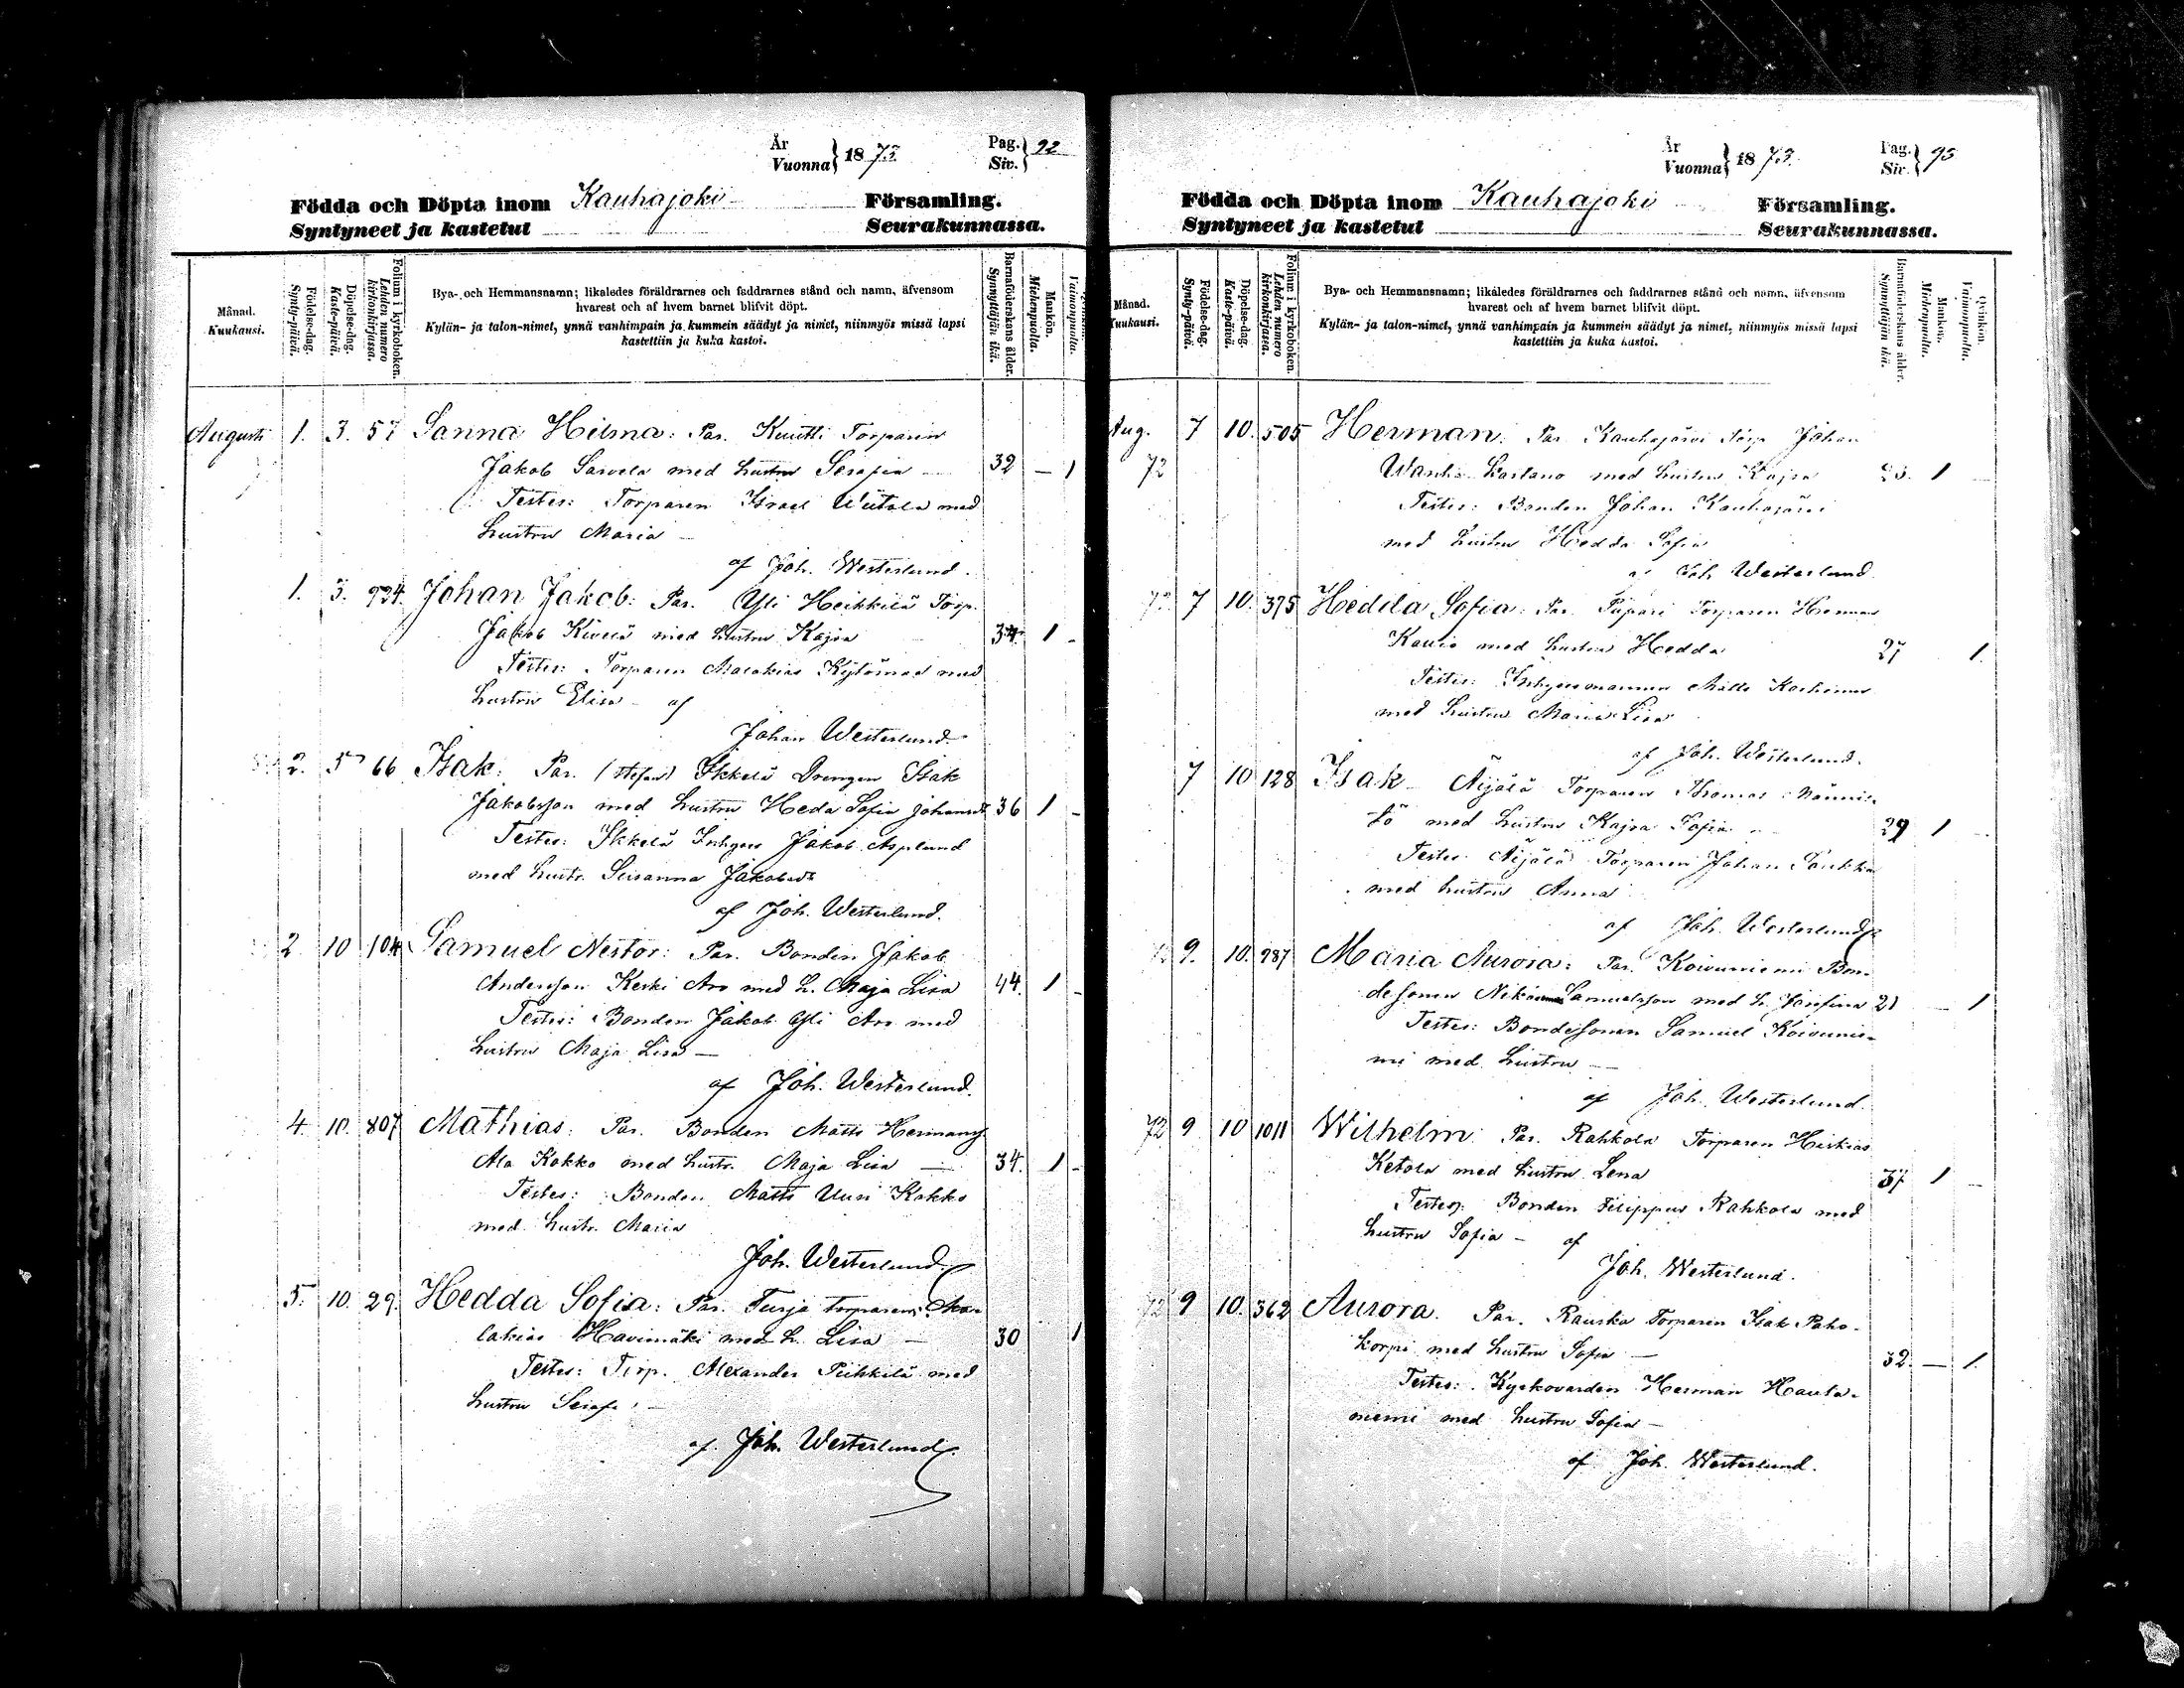 År
Vuonna } 18 73. Pag. Siv. } 92
Födda och Döpta inom Kauhajoki Församling.
Syntyneet ja kastetut Seurakunnassa.
Månad. Kuukausi.
Födelse-dag. Synty-päivä.
Döpelse-dag. Kaste-päivä.
Folium i kyrkoboken. Lehden numero kirkonkirjassa.
Bya- och Hemmansnamn; likaledes föräldrarnes och faddrarnes stånd och namn, äfvensom
hvarest och af hvem barnet blifvit döpt.
Kylän- ja talon-nimet, ynnä vanhimpain ja kummein säädyt ja nimet, niinmyös missä lapsi
kastettiin ja kuka kastoi.
Barnaföderskans ålder. Synnyttäjän ikä.
Mankön. Miehenpuolta.
Vaimonpuolta.
Augusti 1. 3. 57 Sanna Hilma: Par. Kuutti Torparen
Jakob Sarvela med hustru Serafia 32 – 1
Testes: Torparen Israel Wiitala med
hustru Maria –
af Joh. Westerlund.
1. 3. 924. Johan Jakob: Par. Yli Heikkilä Torp.
Jakob Kivelä med hustru Kajsa 34. 1 -
Testes: Torparen Malakias Kytömaa med
hustru Elisa – af
Johan Westerlund.
2. 5 66 Isak: Par. (Stefan) Ikkelä Drengen Isak
Jakobsson med hustru Heda Sofia Johansdr 36 1 -
Testes: Ikkelä Inhyses Jakob Asplund
med hustr. Susanna Jakobsdr
af Joh. Westerlund.
2 10 104 Samuel Nestor: Par. Bonden Jakob
Andersson Keski Aro med h. Maja Lisa 44. 1 -
Testes: Bonden Jakob Yli Aro med
hustru Maja Lisa –
af Joh. Westerlund.
4. 10. 807 Mathias: Par. Bonden Matts Hermans
Ala Kokko med hustr. Maja Lisa – 34. 1 -
Testes: Bonden Matts Uusi Kokko
med hustr. Maria
Joh. Westerlund
5. 10. 29. Hedda Sofia: Par. Turja torparen Ma-
lakias Havimäki med h. Lisa – 30 1
Testes: Torp. Alexander Pihkilä med
hustru
af. Joh. Westerlund.
År
Vuonna } 18 73. Pag. Siv. } 93
Födda och Döpta inom Kauhajoki Församling.
Syntyneet ja kastetut Seurakunnassa.
Månad. Kuukausi.
Födelse-dag. Synty-päivä.
Döpelse-dag. Kaste-päivä.
Folium i kyrkoboken. Lehden numero kirkonkirjassa.
Bya- och Hemmansnamn; likaledes föräldrarnes och faddrarnes stånd och namn, äfvensom
hvarest och af hvem barnet blifvit döpt.
Kylän- ja talon-nimet, ynnä vanhimpain ja kummein säädyt ja nimet, niinmyös missä lapsi
kastettiin ja kuka kastoi.
Barnaföderskans ålder. Synnyttäjän ikä.
Mankön. Miehenpuolta.
Qvinkön. Vaimonpuolta.
Aug. 7 10. 505 Herman: Par. Kauhajärvi Torp. Johan
72 med hustru Kajsa 1
Testes: Bonden Johan Kauhajärvi
med hustru Hedda Sofia
af Joh. Westerlund
72 7 10. 375 Hedda Sofia: Par. Piipari Torparen Herman
med hustru Hedda 27 1.
Testes: Inhysesmannen Matts
med hustru Maria Lisa
af Joh. Westerlund.
7 10 128 Isak – Äijälä Torparen Thomas Männis-
tö med hustru Kajsa Sofia 29 1
Testes: Äijälä Torparen Johan
med hustru Anna
af Joh. Westerlund
72 9. 10. 987 Maria Aurora: Par. Koivuniemi Bon-
desonen Samuelsson med h. Josefina 21 – 1
Testes: Bondesonen Samuel Koivunie-
mi med hustru –
af Joh. Westerlund.
72 9 10 1011 Wilhelm: Par. Rahkola Torparen Hiskias
Ketola med hustru Lena 37 1
Testes: Bonden Filippus Rahkola med
hustru Sofia – af
Joh. Westerlund.
72 9 10. 362 Aurora. Par. Rauska Torparen Isak Paho-
korpi med hustru Sofia – 32. – 1.
Testes: Kyrkovärden Herman Hauta-
niemi med hustru Sofia –
af Joh. Westerlund.